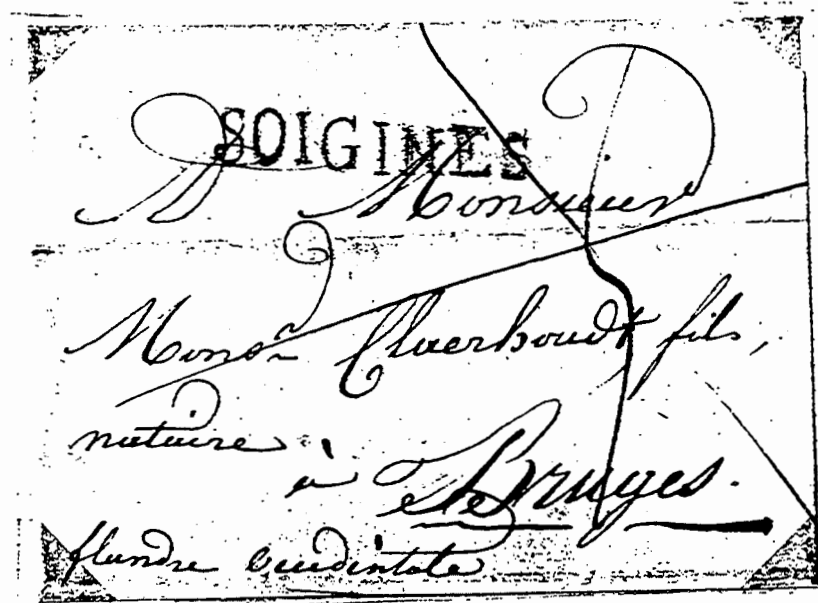 SOIGINES
A Monsieur
Monsr Claerhoudt fils,
notaire
à Bruges.
flandre occidentale